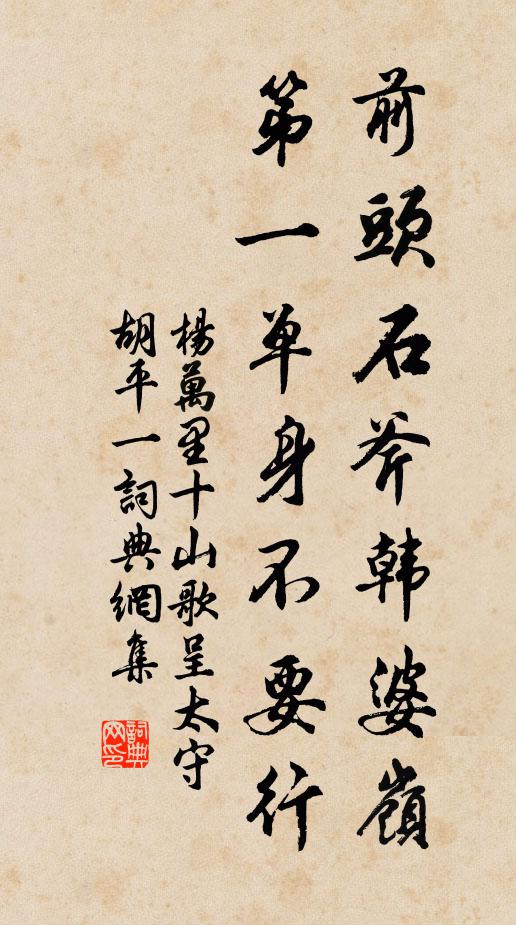 前頭石斧韩婆嶺
第一单身不要行
楊萬里十山歌呈太守
胡平一詞典網集
詞典网印